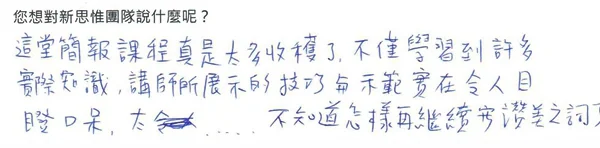 您想對新思惟團隊說什麼呢？
這堂簡報課程真是太多收穫了，不僅學習到許多
實際知識，講師所展示的技巧與示範實在令人目
瞪口呆，太…… 不知道怎樣再繼續 讚美之詞